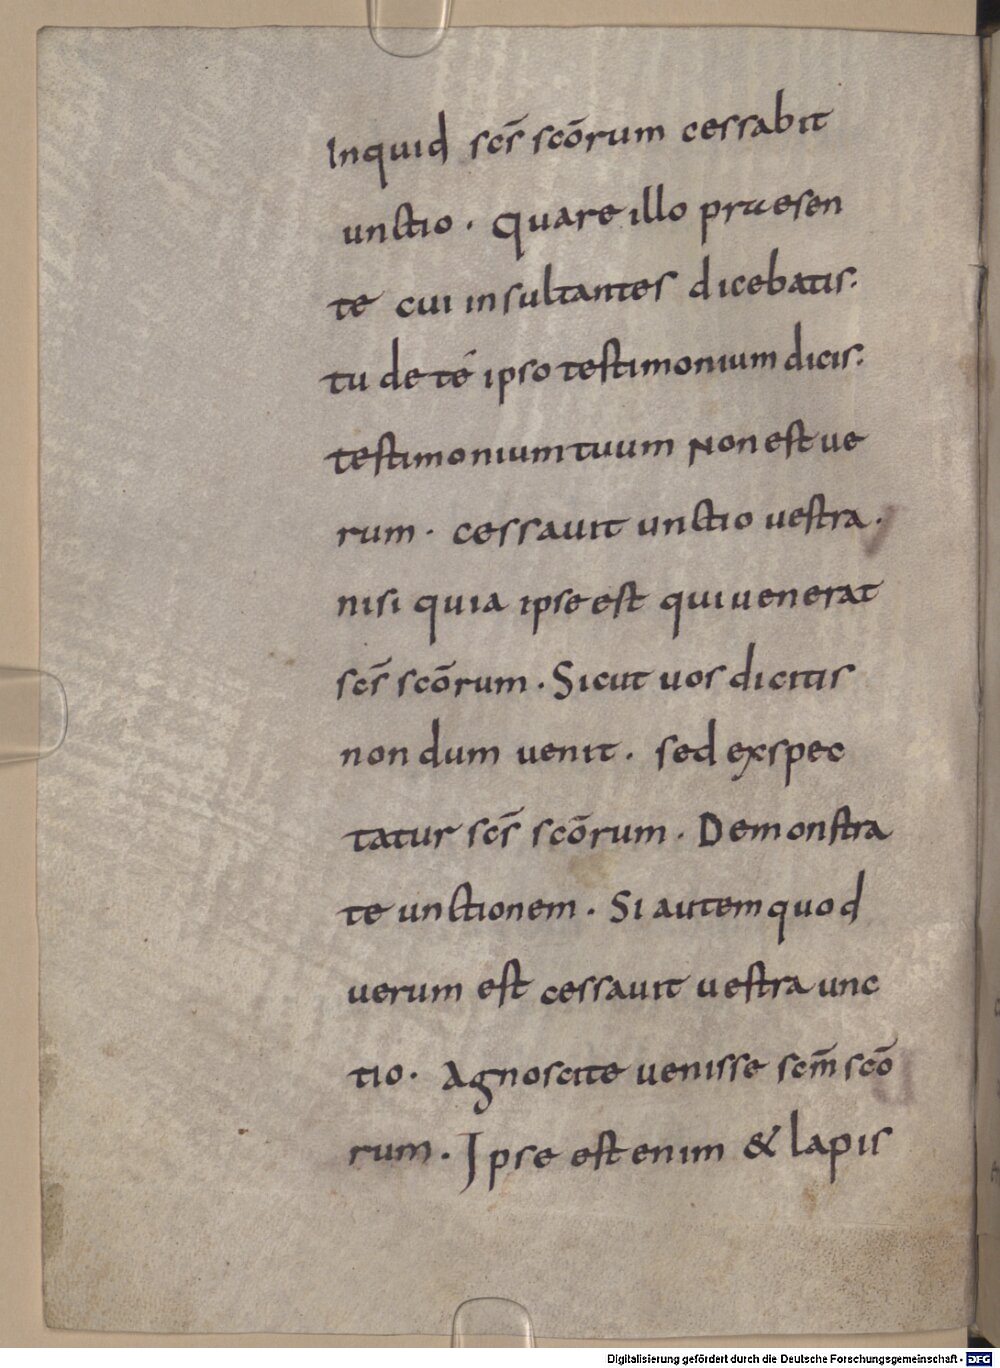 Inquid scs̄ scōrum cessabit
unctio . Quare illo praesen
te cui insultantes dicebatis:
tu de té ipso testimonium dicis:
testimonium tuum Non est ue
rum . cessauit unctio uestra .
nisi quia ipse est qui uenerat
scs̄ scōrum . Sicut uos dicitis
non dum uenit . sed exspec
tatur scs̄ scōrum . Demonstra
te unctionem . Si autem quod
uerum est cessauit uestra unc
tio . Agnoscite uenisse scm̄ scō
rum . Ipse est enim & lapis
Digitalisierung gefördert durch die Deutsche Forschungsgemeinschaft - DFG